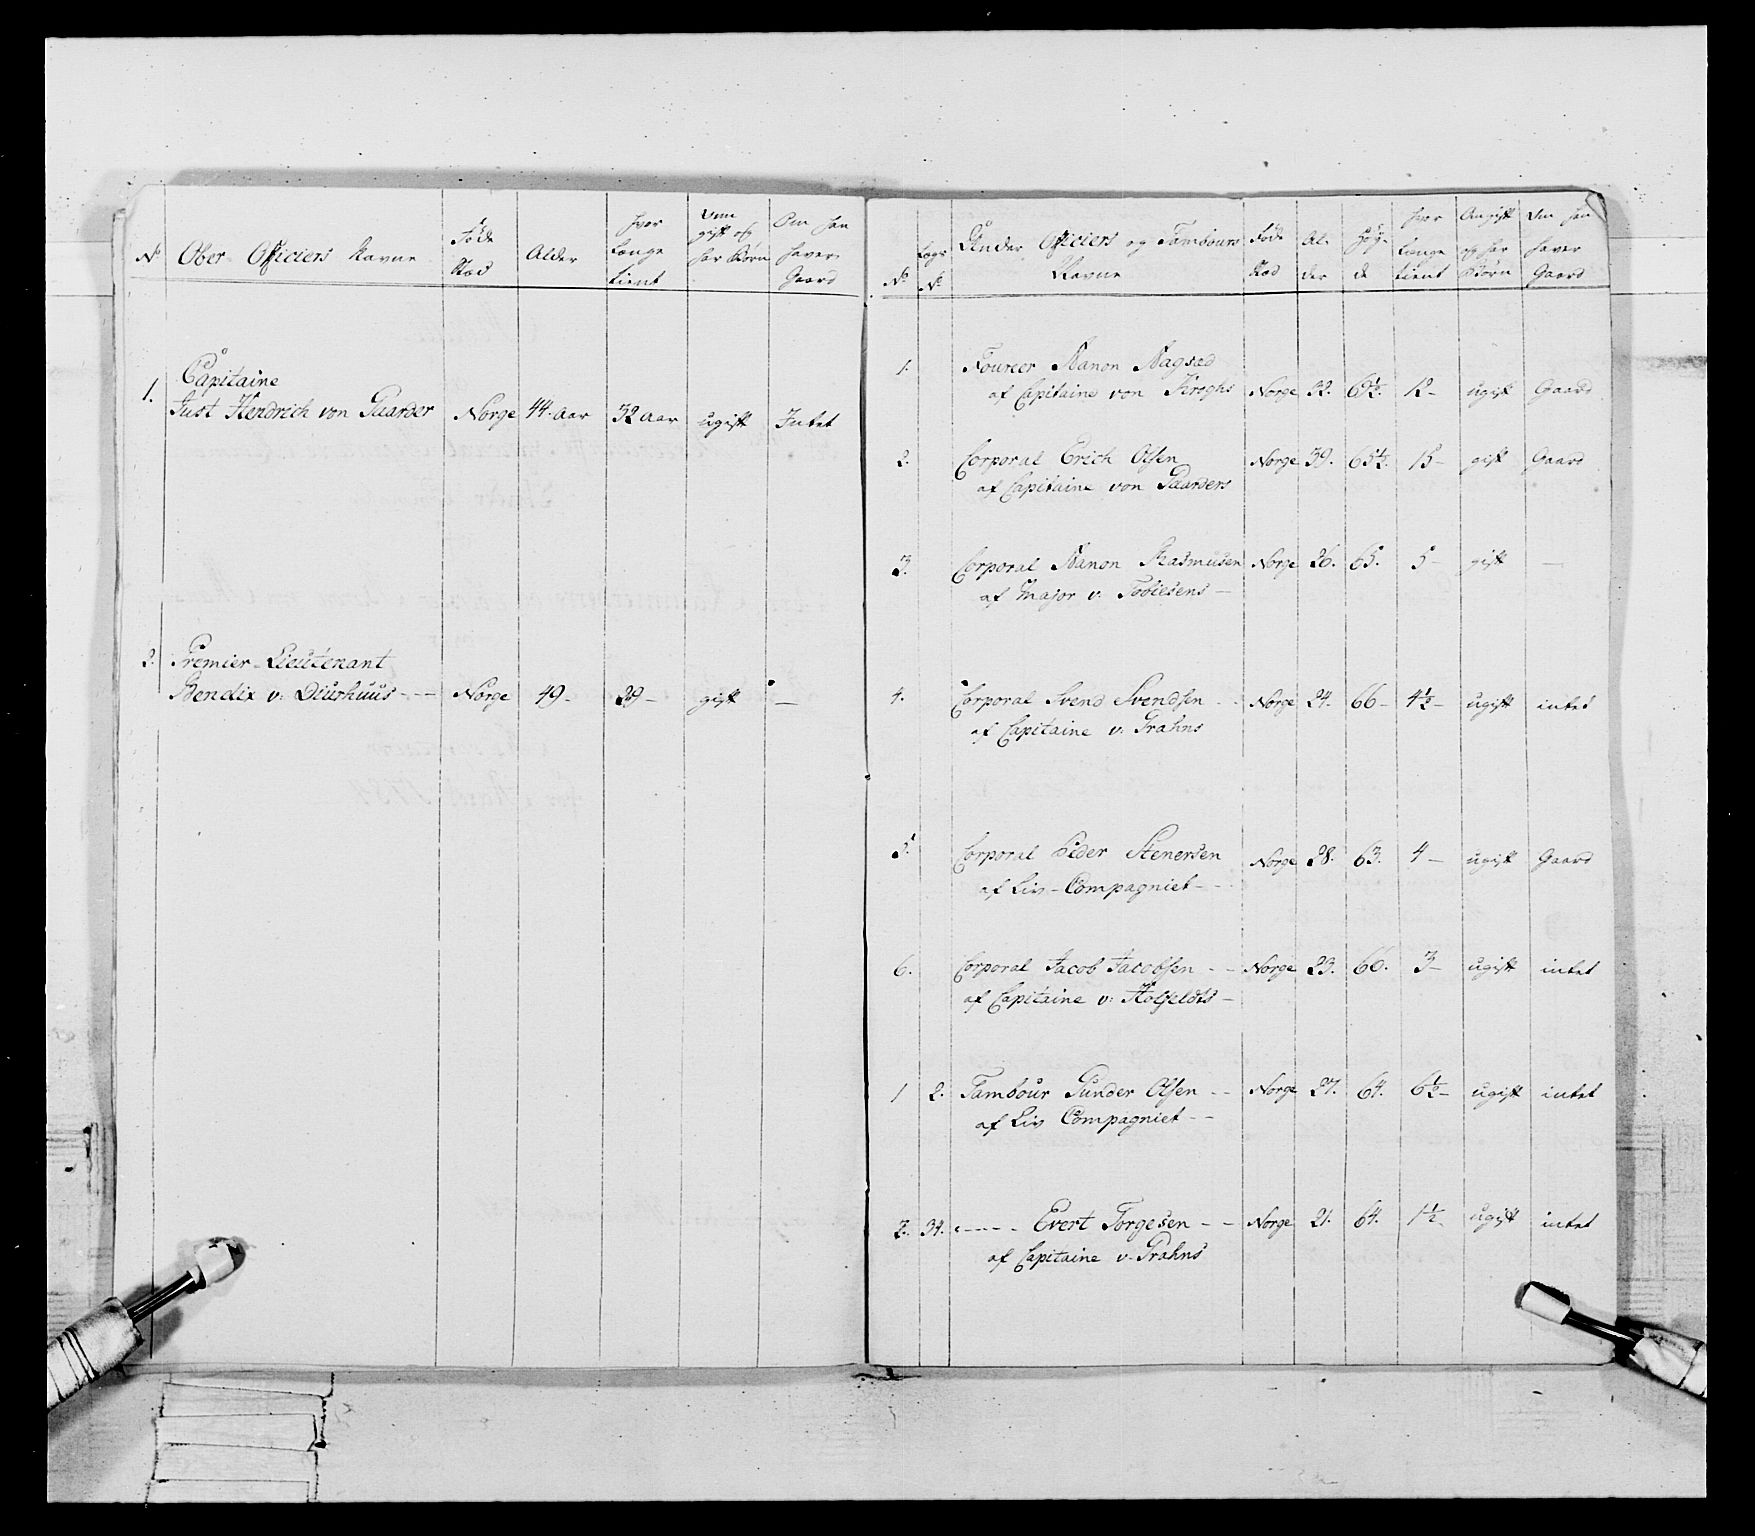 No Ober Officiers Navne
Føde Stæd
Alder
hvor længe tient
Om gift og har Børn
Om han haver Gaard
1. Capitaine
Just Hendrich von Gaarder Norge 44. aar 32 aar ugift Intet
2. Premier-Lieutenant
Bendix v: Diurhuus - - - Norge 49 - 29 - gift —
No Lægs No Under Officiers og Tambours Navne
Føde Stæd
Al- der
Høy- de
hvor længe tient
Om gift og har Børn
Om han haver Gaard
1. Fourer Nanon Nagsæd
af Capitaine von Kroghs Norge 32. 63½. 12 - ugift Gaard
2. Corporal Erich Olsen Norge 39. 65½. 15 - gift Gaard
af Capitaine von Gaarders
3. Corporal Nanon Rasmusen Norge 26. 65. 5 - gift —
af Major v: Tobiesens —
4. Corporal Svend Svendsen - - Norge 24. 66 - 4½ - ugift intet
af Capitaine v: Grahns
5. Corporal Peder Stenersen Norge 28. 63. 4 - ugift Gaard
af Liv - Compagniet - - -
6. Corporal Jacob Jacobsen - - Norge 23. 66. 3 - ugift intet
af Capitaine v: Holfeldts —
1 2. Tambour Gunder Olsen - - Norge 27. 64. 6½ - ugift intet
af Liv Compagniet - -
2. 34. - - - - Evert Torgesen - - Norge 21. 64. 1½ - ugift intet
af Capitaine v. Grahns